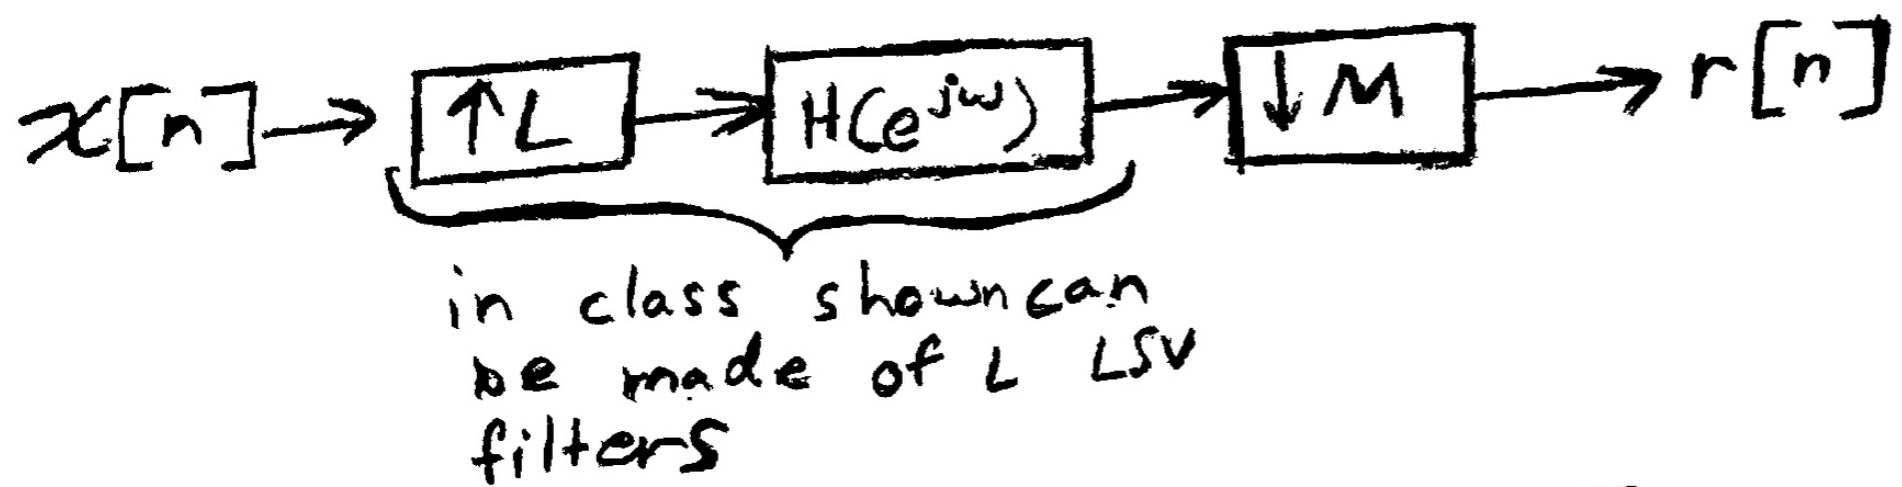 x[n] → ↑L → H(e^{jω}) → ↓M → r[n]
in class shown can
be made of L LSV
filters